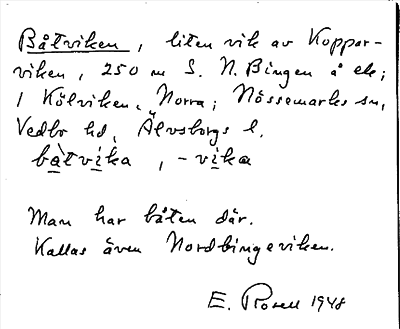 Båtviken, liten vik av Koppar-
viken, 250 m S. N. Bingen å ek;
i Kölviken, Norra; Nössemarks sn,
Vedbo hd, Älvsborgs l.
bàtvika, -vika
Man har båten där.
Kallas även Nordbingeviken.
E. Rosell 1948